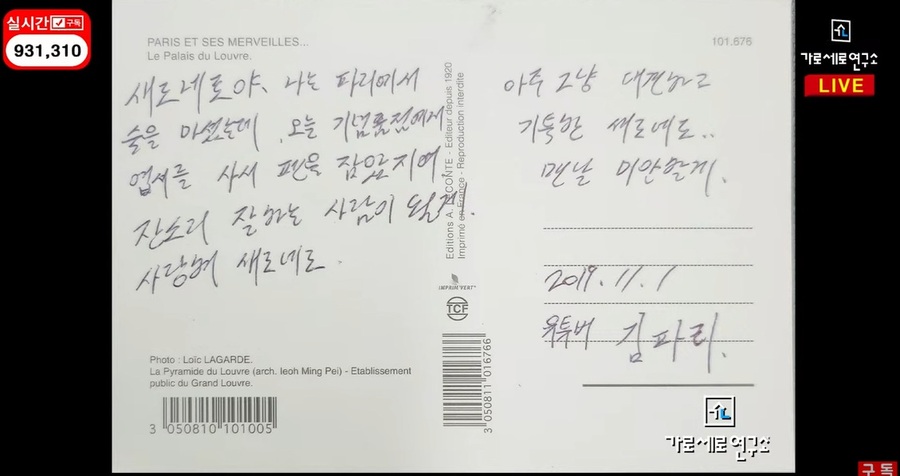 실시간 구독
931,310
가로세로연구소
LIVE
PARIS ET SES MERVEILLES...
Le Palais du Louvre.
101.676
새로네로야. 나는 파리에서
술을 마셨는데 오늘 기념품점에서
엽서를 사서 펜을 잡았지여.
잔소리 잘하는 사람이 될게.
사랑혀 새로네로.
아주 그냥 대견하고
기특한 새로네로..
맨날 미안할게.
2019. 11. 1
유투버 김파리.
Editions A. LECONTE - Editeur depuis 1920
Imprimé en France - Reproduction interdite
IMPRIM'VERT
TCF
3 050811 016766
Photo : Loïc LAGARDE.
La Pyramide du Louvre (arch. Ieoh Ming Pei) - Etablissement
public du Grand Louvre.
3 050810 101005
가로세로연구소
구독